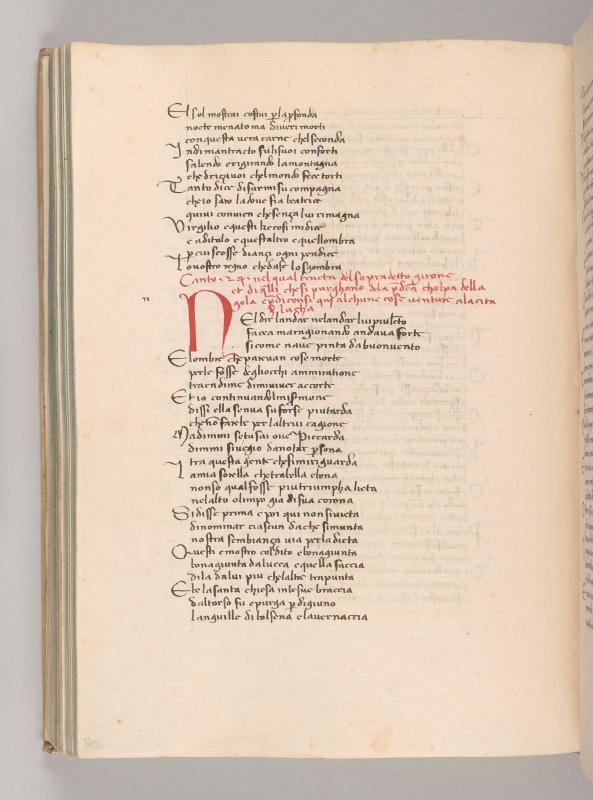 El sol mostrai costui p la pfonda
nocte menatoma diveri morti
con questa vera carne chel seconda
Indi mantracto su li suoi conforti
salendo e rigirando la montagna
che drizavoi chel mondo fece torti
Tanto dice di farmi su compagna
che io saro la dove fia beatrice
quivi convien che senza lui rimagna
Virgilio e questi ke cosi mi dice
e aditalo e questaltro e quellombra
p cui scosse dianzi ogni pendice
lo vostro regno che da se lo sgombra
Canto 24 nel qual tracta del sopradetto girone
et di qlli che si purghano de la pdcā cholpa della
gola e pdiconsi qui alchune cose venture a la cita
di lucha
n
Nel dir landar ne landar lui piu lēto
facea ma ragionando andava forte
si come nave pinta da buon vento
E lombre che parevan cose morte
per le fosse degliocchi ammiratione
traen di me di mi viver accorte
Et io continuando l mi sermone
dissi ella sen va su forse piu tarda
che nō farebe per laltrui cagione
Ma dimmi se tu sai ove Piccarda
dimmi si vegio da notar psona
tra questa gente che si mi riguarda
La mia sorella che tra bella e bona
non so qual fosse piu triumpha lieta
nel alto olimpo gia di sua corona
Si disse prima e poi qui non si vieta
di nominar ciascun da che si munta
nostra sembianza via per la dieta
Questi e mostro col dito e bonagiunta
bonagiunta da lucca e quella faccia
di la da lui piu che laltre trapunta
Ebe la santa chiesa in le sue braccia
dal torso fu e purga p digiuno
languille di bolsena e la vernaccia